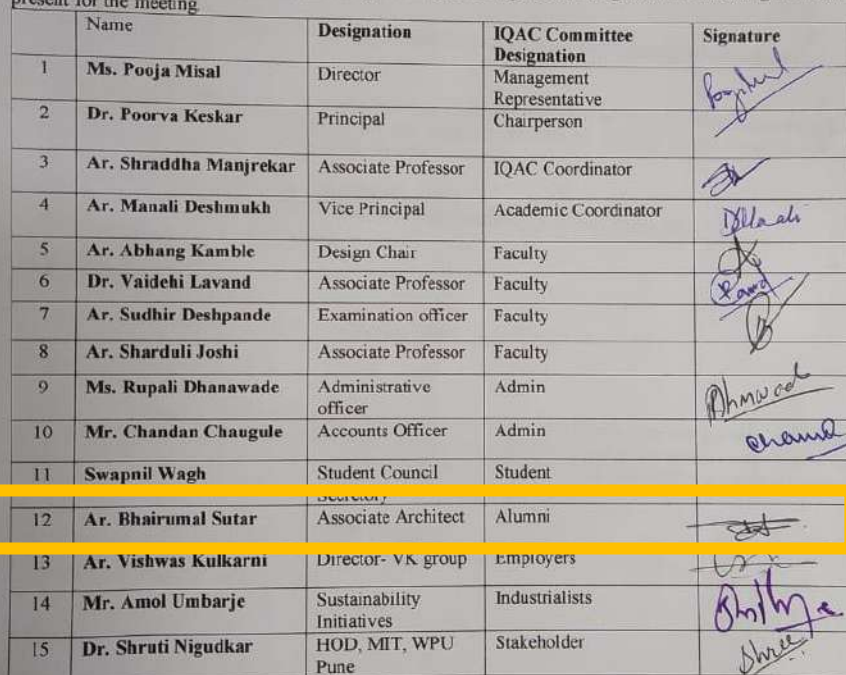 present for the meeting
Name Designation IQAC Committee Designation Signature
1 Ms. Pooja Misal Director Management Representative
2 Dr. Poorva Keskar Principal Chairperson
3 Ar. Shraddha Manjrekar Associate Professor IQAC Coordinator
4 Ar. Manali Deshmukh Vice Principal Academic Coordinator
5 Ar. Abhang Kamble Design Chair Faculty
6 Dr. Vaidehi Lavand Associate Professor Faculty
7 Ar. Sudhir Deshpande Examination officer Faculty
8 Ar. Sharduli Joshi Associate Professor Faculty
9 Ms. Rupali Dhanawade Administrative officer Admin
10 Mr. Chandan Chaugule Accounts Officer Admin
11 Swapnil Wagh Student Council Secretory Student
12 Ar. Bhairumal Sutar Associate Architect Alumni
13 Ar. Vishwas Kulkarni Director- VK group Employers
14 Mr. Amol Umbarje Sustainability Initiatives Industrialists
15 Dr. Shruti Nigudkar HOD, MIT, WPU Pune Stakeholder Shree